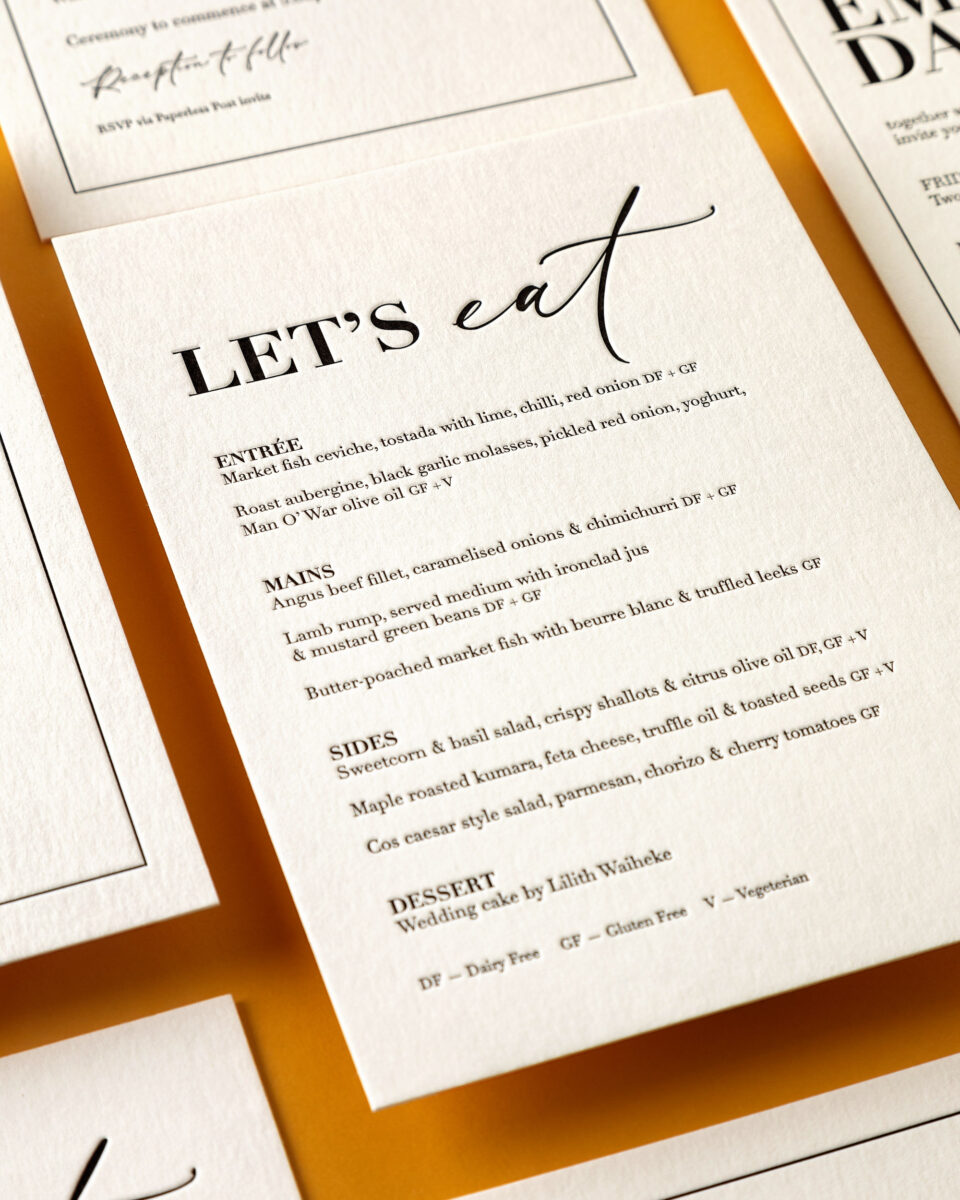 Ceremony to commence at
Reception to follow
RSVP via Paperless Post invite
together
invite you
LET'S eat
ENTRÉE
Market fish ceviche, tostada with lime, chilli, red onion DF + GF
Roast aubergine, black garlic molasses, pickled red onion, yoghurt,
Man O' War olive oil GF +V
MAINS
Angus beef fillet, caramelised onions & chimichurri DF + GF
Lamb rump, served medium with ironclad jus
& mustard green beans DF + GF
Butter-poached market fish with beurre blanc & truffled leeks GF
SIDES
Sweetcorn & basil salad, crispy shallots & citrus olive oil DF, GF +V
Maple roasted kumara, feta cheese, truffle oil & toasted seeds GF +V
Cos caesar style salad, parmesan, chorizo & cherry tomatoes GF
DESSERT
Wedding cake by Lilith Waiheke
DF – Dairy Free GF – Gluten Free V – Vegeterian